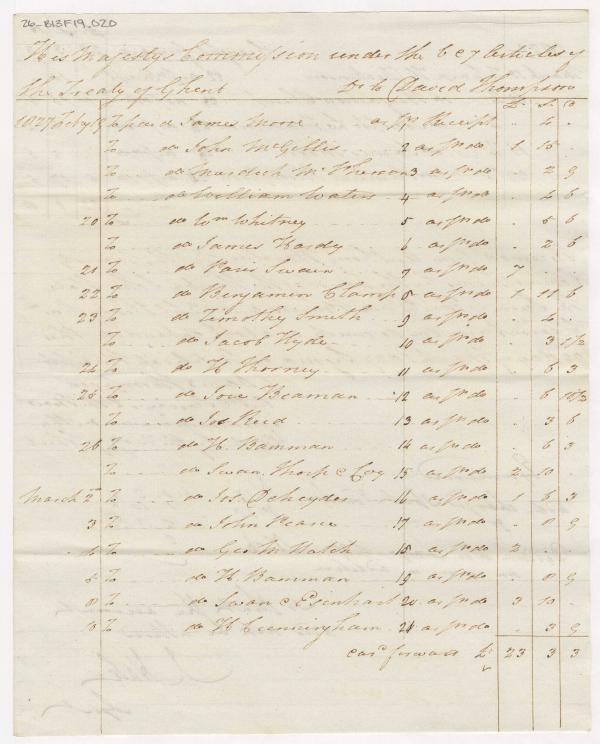 26-B13F19_020
His Majestys Commission under the 6 & 7 Articles of
the Treaty of Ghent Dr to David Thompson
£ S. D
1827 Feby 19 To paid James Moore 1 as pr Receipt . 4 .
To do John McGillis 2 as pr do 1 15 .
To do Murdoch McPherson 3 as pr do . 2 9
To do William Waters 4 as pr do . 4 6
20 To do Wm Whitney 5 as pr do . 5 6
To do James Hardy 6 as pr do . 2 6
21 To do Paris Swain 7 as pr do 7
22 To do Benjamin Clamp 8 as pr do 1 11 6
23 To do Timothy Smith 9 as pr do . 4 .
To do Jacob Hyde 10 as pr do . 3 1 1/2
24 To do H Thorney 11 as pr do 6 3
25 To do Beaman 12 as pr do . 6 10 1/2
To do Jos Reed 13 as pr do . 3 6
26 To do H. Bamman 14 as pr do 6 3
To do Swan Thorp & Coy 15 as pr do 2 10 .
March 2d To do Jos. 16 as pr do 1 6 3
3 To do John Pearce 17 as pr do . 8 9
To do Geo M Hatch 18 as pr do 2 .
To do H Bamman 19 as pr do . 8 9
8 To do Swan & Esenhart 20 as pr do 3 10 .
To do H Cunningham 21 as pr do . 3 9
card forward £ 23 3 3